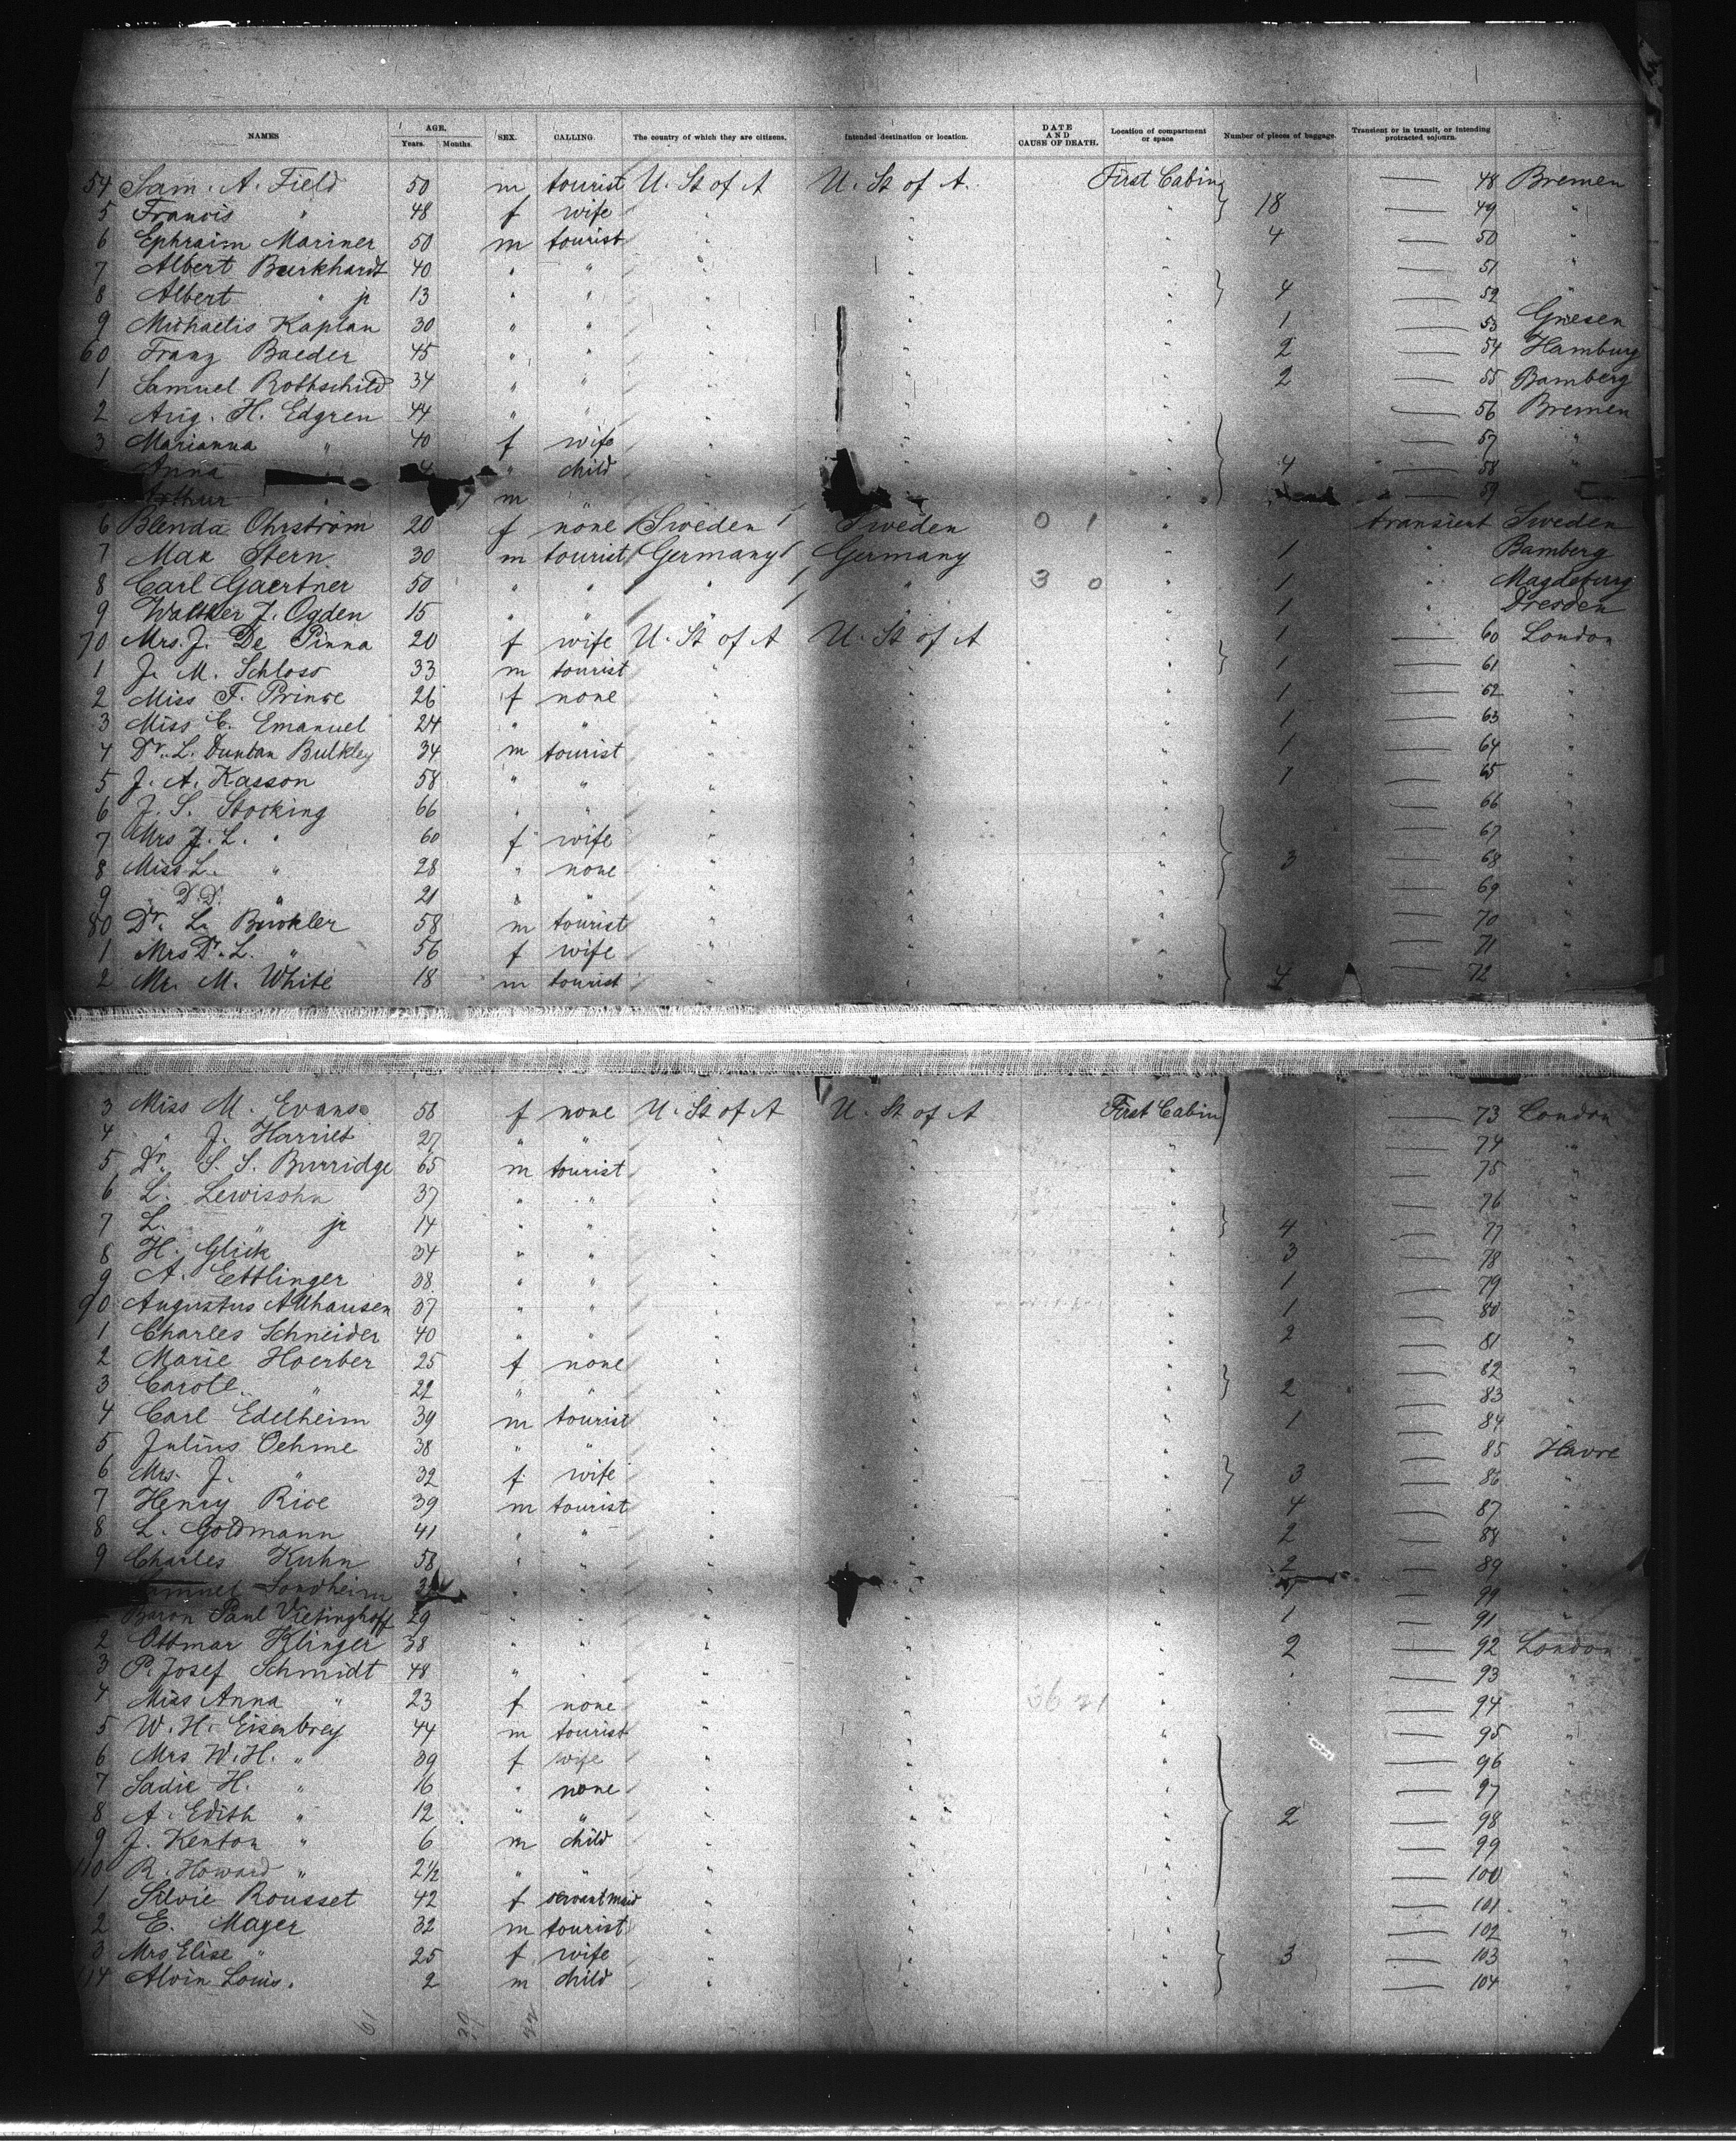 NAMES AGE. Years. Months. SEX. CALLING. The country of which they are citizens. Intended destination or location. DATE AND CAUSE OF DEATH. Location of compartment or space Number of pieces of baggage. Transient or in transit, or intending protracted sojourn.
54 Sam. A. Field 50 m tourist U. St of A U. St of A. First Cabin — 48 Bremen
5 Francis " 48 f wife " " " 18 — 49 "
6 Ephraim Mariner 50 m tourist " " " 4 — 50 "
7 Albert Burkhardt 40 " " " " " — 51 "
8 Albert " jr 13 " " " " " 4 — 52 "
9 Michaelis Kaplan 30 " " " " " 1 — 53 Griesen
60 Franz Baeder 45 " " " " " 2 — 54 Hamburg
1 Samuel Rothschild 34 " " " " " 2 — 55 Bamberg
2 Aug. H. Edgren 44 " " " " " — 56 Bremen
3 Marianna " 40 f wife " " " — 57 "
Anna " 4 " child " " " 4 — 58 "
Arthur " m " " " " — 59 "
6 Blenda Ohrström 20 f none Sweden Sweden 0 1 " transient Sweden
7 Max Stern 30 m tourist Germany Germany " 1 " Bamberg
8 Carl Gaertner 50 " " " " 3 0 " 1 " Magdeburg
9 Walther J. Ogden 15 " " " " " 1 " Dresden
70 Mrs. J. De Pinna 20 f wife U. St of A U. St of A " 1 — 60 London
1 J. M. Schloss 33 m tourist " " " 1 — 61 "
2 Miss F. Prince 26 f none " " " 1 — 62 "
3 Miss C. Emanuel 24 " " " " " 1 — 63 "
4 Dr. L. Duncan Bulkley 34 m tourist " " " 1 — 64 "
5 J. A. Kasson 58 " " " " " 1 — 65 "
6 J. S. Stocking 66 " " " " " — 66 "
7 Mrs J. L. " 60 f wife " " " — 67 "
8 Miss L. " 28 " none " " " 3 — 68 "
9 " D. D. " 21 " " " " " — 69 "
80 Dr. L. Buckler 58 m tourist " " " — 70 "
1 Mrs Dr. L. " 56 f wife " " " — 71 "
2 Mr. M. White 18 m tourist " " " 4 — 72 "
3 Miss M. Evans 58 f none U. St of A U. St of A First Cabin — 73 London
4 " J. Harriet 27 " " " " " — 74 "
5 Dr. S. S. Burridge 65 m tourist " " " — 75 "
6 L. Lewisohn 37 " " " " " — 76 "
7 L. " jr 14 " " " " " 4 — 77 "
8 H. Glick 34 " " " " " 3 — 78 "
9 A. Eettlinger 38 " " " " " 1 — 79 "
90 Augustus Allhausen 37 " " " " " 1 — 80 "
1 Charles Schneider 40 " " " " " 2 — 81 "
2 Marie Hoerber 25 f none " " " — 82 "
3 Carole " 22 " " " " " 2 — 83 "
4 Carl Edelheim 39 m tourist " " " 1 — 84 "
5 Julius Oehme 38 " " " " " — 85 Havre
6 Mrs. J. " 32 f wife " " " 3 — 86 "
7 Henry Rice 39 m tourist " " " 4 — 87 "
8 L. Goldmann 41 " " " " " 2 — 88 "
9 Charles Kuhn 58 " " " " " 2 — 89 "
Samuel Sondheim " " " " " — 99 "
Baron Paul Vietinghoff 29 " " " " " 1 — 91 "
2 Ottmar Klinger 38 " " " " " 2 — 92 London
3 P. Josef Schmidt 48 " " " " " " — 93 "
4 Miss Anna " 23 f none " " 36 21 " " — 94 "
5 W. H. Eisenbrey 44 m tourist " " " — 95 "
6 Mrs W. H. " 39 f wife " " " — 96 "
7 Sadie H. " 16 " none " " " — 97 "
8 A. Edith " 12 " " " " " 2 — 98 "
9 J. Kenton " 6 m child " " " — 99 "
110 R. Howard " 2½ " " " " " — 100 "
1 Silvie Rousset 42 f servant maid " " " — 101 "
2 E. Mayer 32 m tourist " " " — 102 "
3 Mrs Elise " 25 f wife " " " 3 — 103 "
114 Alvin Louis. 2 m child " " " — 104 "
61 39 22